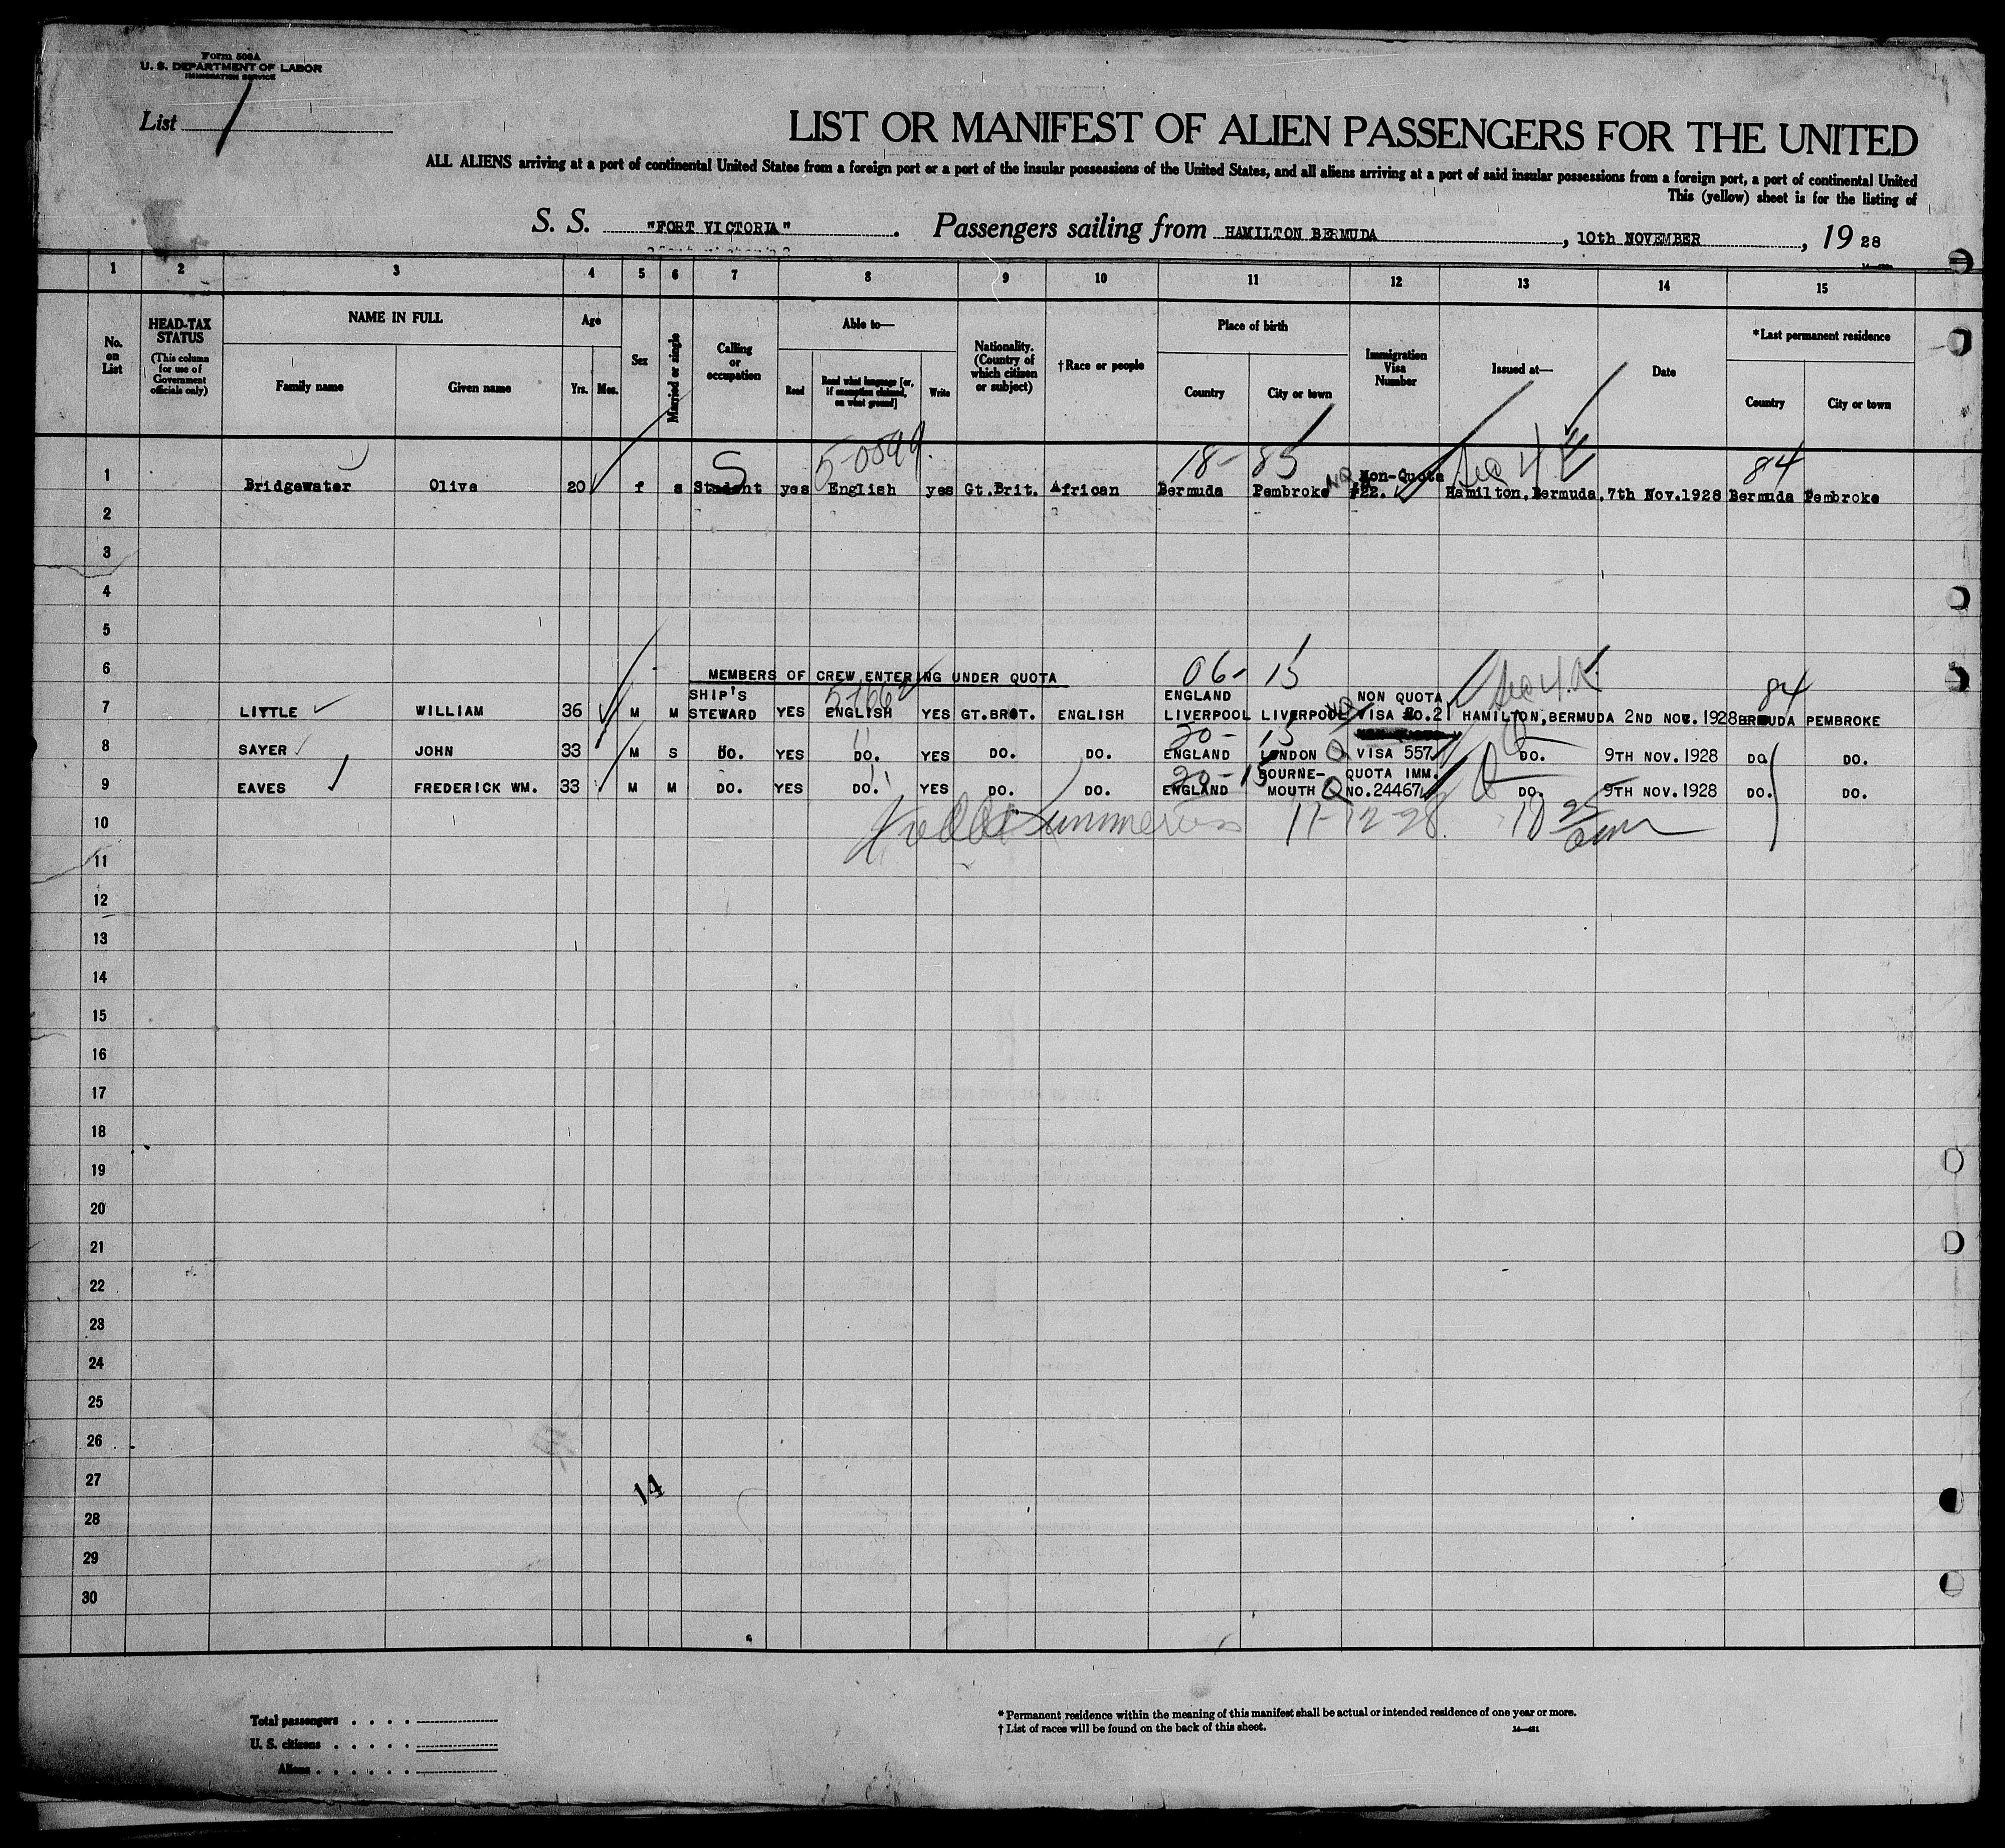 Form 500A
U. S. DEPARTMENT OF LABOR
IMMIGRATION SERVICE
List 1
LIST OR MANIFEST OF ALIEN PASSENGERS FOR THE UNITED
ALL ALIENS arriving at a port of continental United States from a foreign port or a port of the insular possessions of the United States, and all aliens arriving at a port of said insular possessions from a foreign port, a port of continental United
This (yellow) sheet is for the listing of
S. S. "FORT VICTORIA". Passengers sailing from HAMILTON BERMUDA, 10th NOVEMBER, 1928
1 2 3 4 5 6 7 8 9 10 11 12 13 14 15
No. on List
HEAD-TAX STATUS (This column for use of Government officials only)
NAME IN FULL
Family name Given name
Age
Yrs. Mos.
Sex
Married or single
Calling or occupation
Able to—
Read Read what language [or, if exemption claimed, on what ground] Write
Nationality. (Country of which citizen or subject)
†Race or people
Place of birth
Country City or town
Immigration Visa Number
Issued at—
Date
*Last permanent residence
Country City or town
S 5-0599. 18- 85 NQ Sec 4 E 84
1 Bridgewater Olive 20 f s Student yes English yes Gt.Brit. African Bermuda Pembroke Non-Quota #22. Hamilton, Bermuda, 7th Nov.1928 Bermuda Pembroke
2
3
4
5
6 MEMBERS OF CREW ENTERING UNDER QUOTA 06- 15
84
7 LITTLE WILLIAM 36 M M SHIP'S STEWARD YES ENGLISH YES GT.BRIT. ENGLISH ENGLAND LIVERPOOL LIVERPOOL NON QUOTA VISA NO.21 HAMILTON, BERMUDA 2ND NOV. 1928 BERMUDA PEMBROKE
20- 15
8 SAYER JOHN 33 M S DO. YES DO. YES DO. DO. ENGLAND LONDON Q VISA 557 DO. 9TH NOV. 1928 DO. DO.
20- 15
9 EAVES FREDERICK WM. 33 M M DO. YES DO. YES DO. DO. ENGLAND BOURNE-MOUTH Q QUOTA IMM. NO.24467 DO. 9TH NOV. 1928 DO. DO.
10 11-12-28
11
12
13
14
15
16
17
18
19
20
21
22
23
24
25
26
27
14
28
29
30
Total passengers
U. S. citizens
Aliens
* Permanent residence within the meaning of this manifest shall be actual or intended residence of one year or more.
† List of races will be found on the back of this sheet.